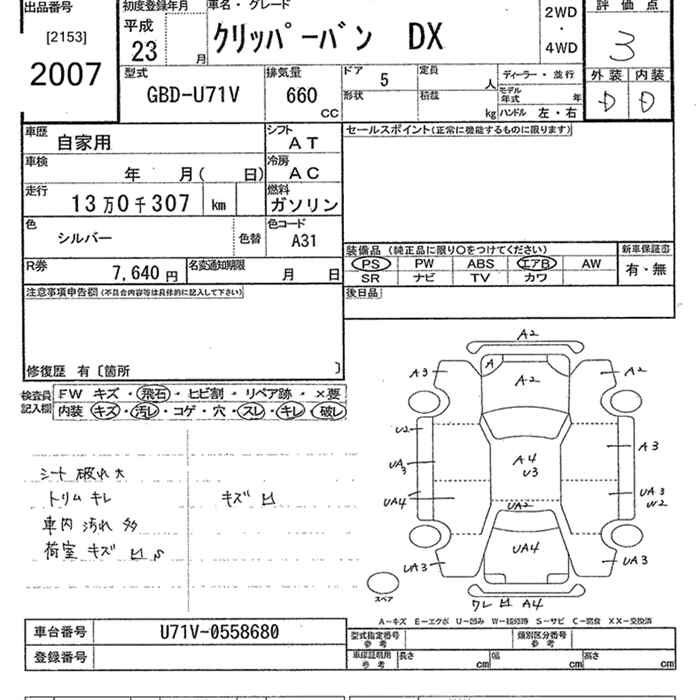 出品番号
[2153]
2007
初度登録年月
平成
23 月
車名・グレード
クリッパーバン DX
2WD
・
4WD
評価点
3
外装 内装
D D
型式
GBD-U71V
排気量
660
cc
ドア 5
形状
定員 人
積載 kg
ディーラー・並行
モデル年式 年
ハンドル 左・右
車歴 自家用
車検 年 月( 日)
走行 13万0千307 km
色 シルバー 色替
シフト AT
冷房 AC
燃料 ガソリン
色コード A31
R券 7,640円
名変通知期限 月 日
注意事項申告欄(不具合内容等は具体的に記入して下さい)
修復歴 有〔箇所 〕
セールスポイント(正常に機能するものに限ります)
装備品(純正品に限り○をつけてください)
PS PW ABS エアB AW
SR ナビ TV カワ
新車保証書
有・無
後日品
検査員記入欄
FW キズ・飛石・ヒビ割・リペア跡・×要
内装 キズ・汚レ・コゲ・穴・スレ・キレ・破レ
シート 破れ 大
トリム キレ
車内 汚れ 多
荷室 キズ 凹
キズ 凹
A2
A3
A
A2
A2
U2
A3
UA3
A4
U3
UA4
UA3
W2
UA2
UA4
UA3
UA3
スペア
ワレ 凹 A4
A-キズ E-エクボ U-凹み W-板跡 S-サビ C-腐食 XX-交換済
車台番号 U71V-0558680
登録番号
型式指定番号
参考
類別区分番号
参考
車検証明用
参考
長さ cm
幅 cm
高さ cm